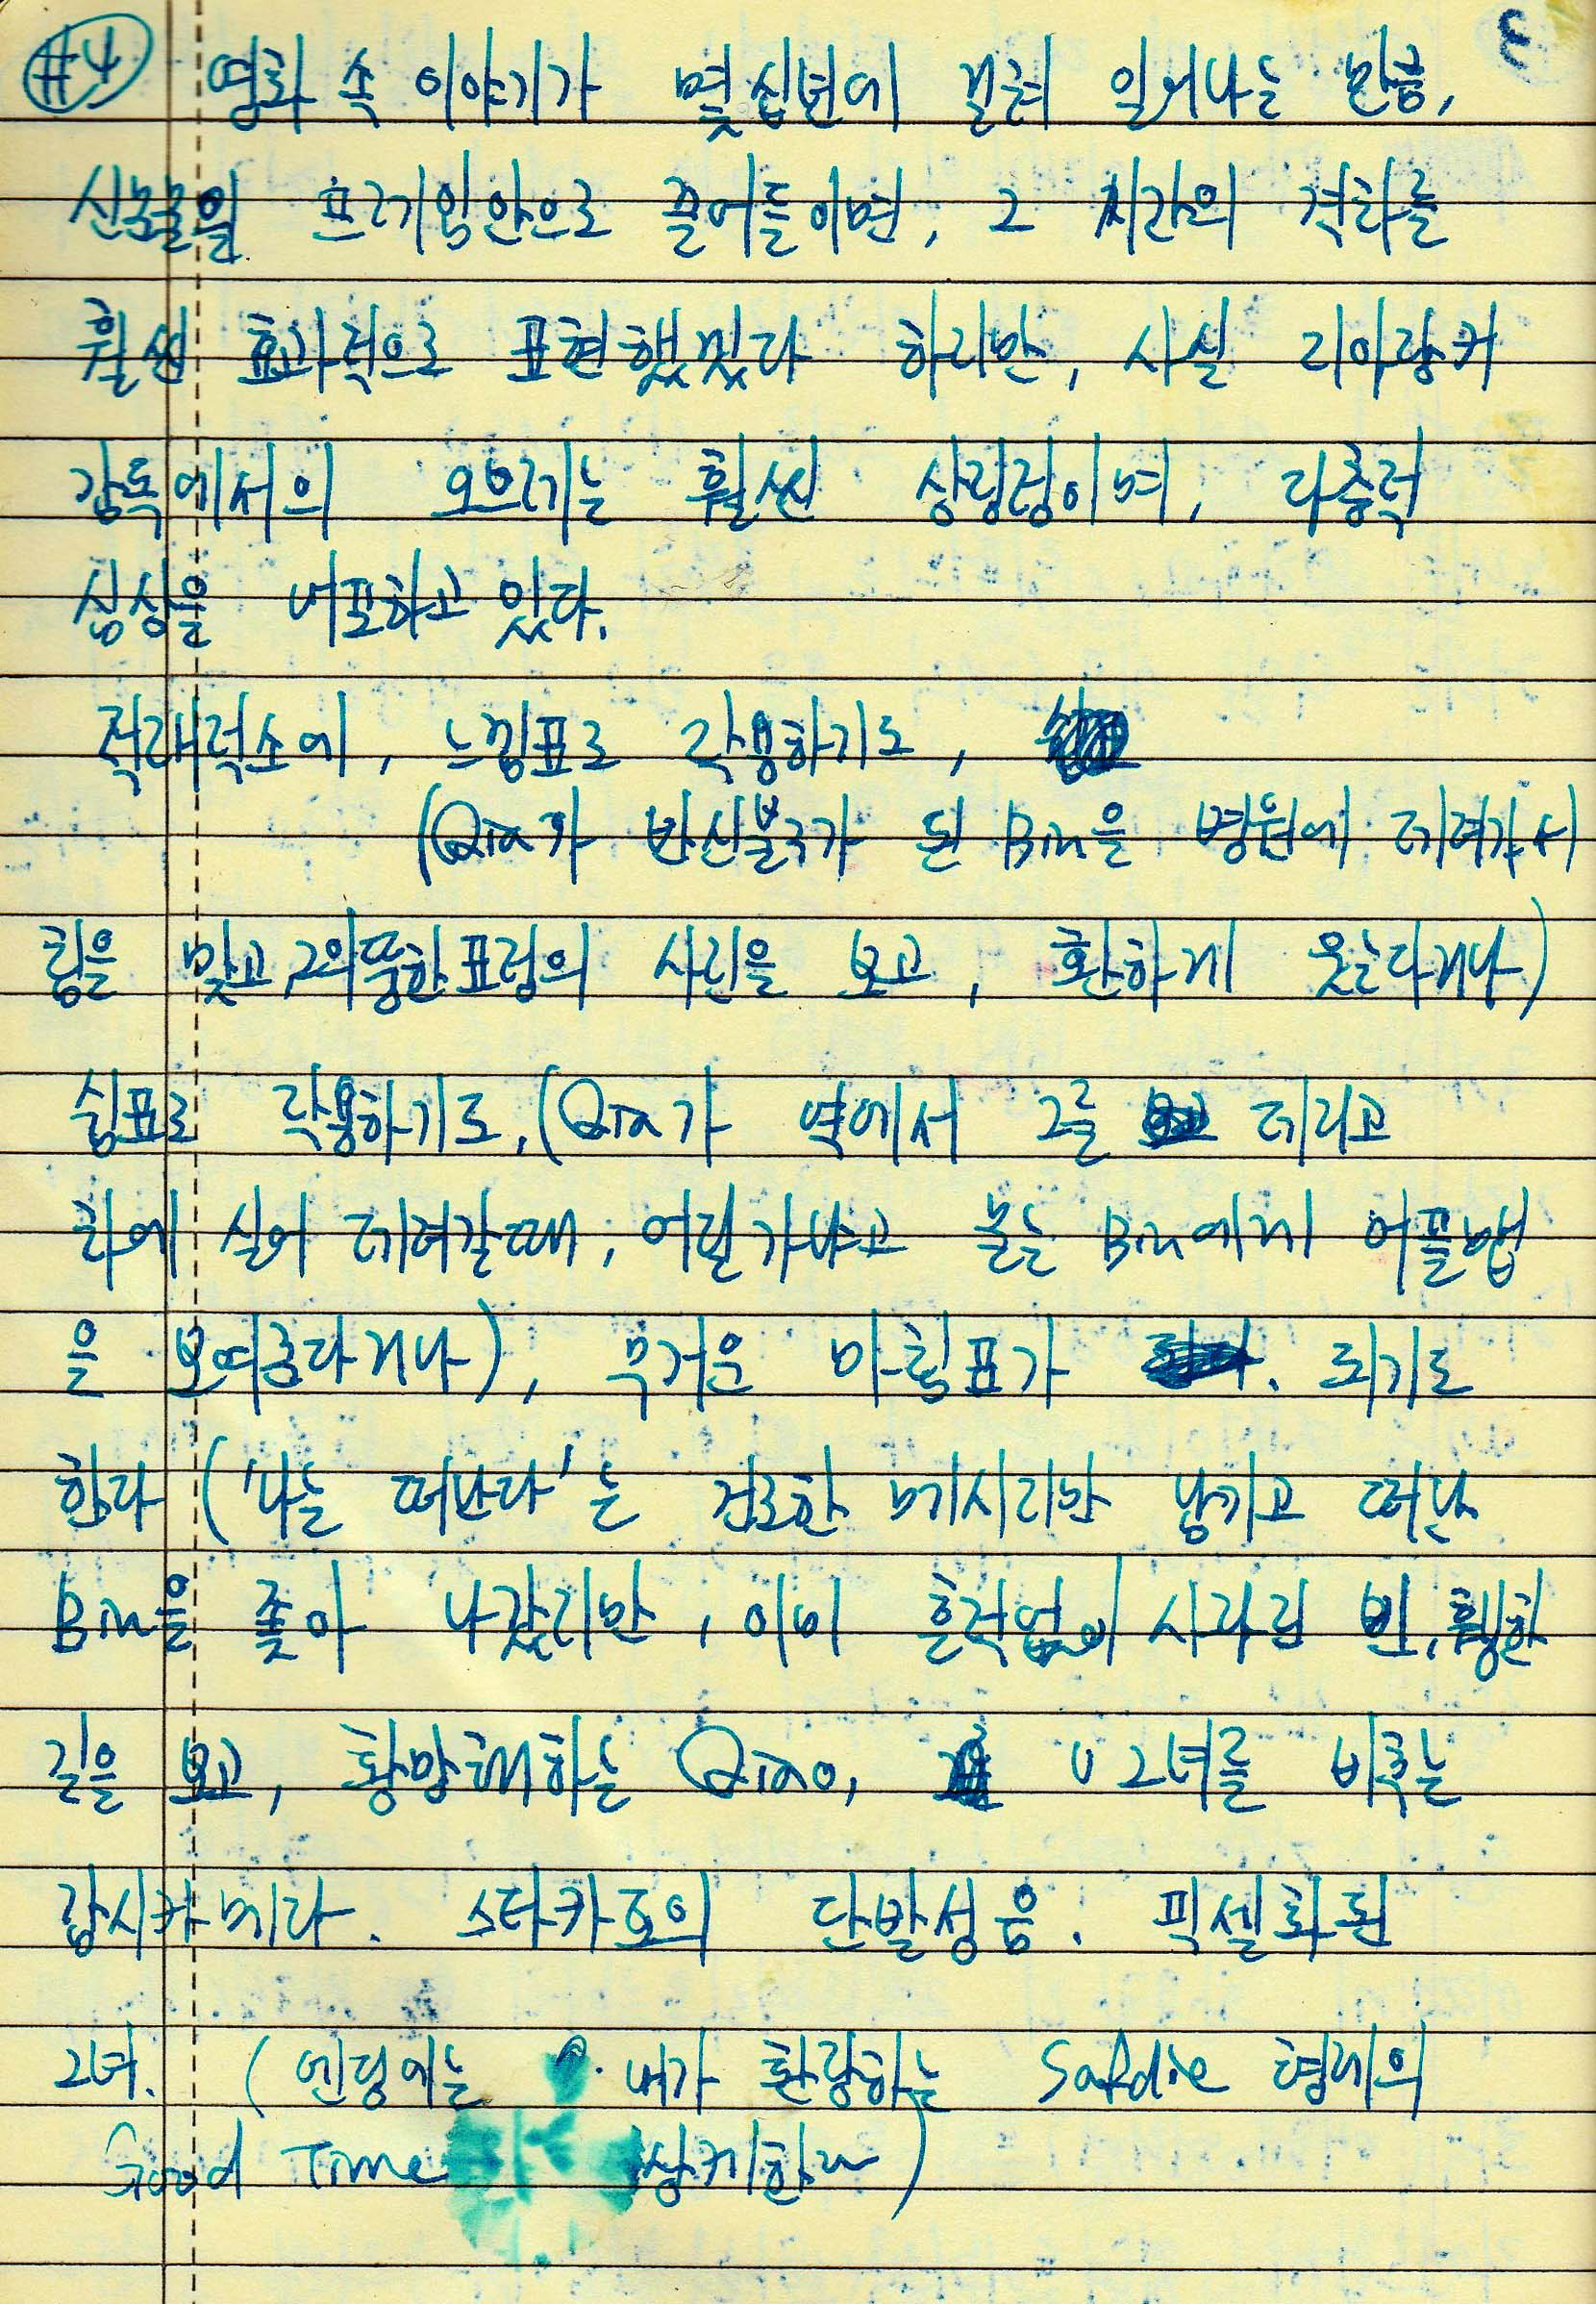 #4 영화 속 이야기가 몇십년에 걸쳐 일어나는 만큼,
신문물을 프레임안으로 끌어들이면, 그 시간의 격차를
훨씬 효과적으로 표현했겠다 하지만, 사실 지아장커
감독에서의 오브제는 훨씬 상징적이며, 다층적
심상을 내포하고 있다.
적재적소에, 느낌표로 작용하기도,
(Qiao가 반신불구가 된 Bin을 병원에 데려가서
침을 맞고, 그의 뚱한 표정의 사진을 보고, 환하게 웃는다거나)
쉼표로 작용하기도, (Qiao가 역에서 그를 데리고
차에 실어 데려갈때, 어딜가냐고 묻는 Bin에게 어플맵
을 보여준다거나), 무거운 마침표가 되기도
한다 ('나는 떠난다'는 건조한 메시지만 남기고 떠난
Bin을 쫓아 나갔지만, 이미 흔적없이 사라진 빈, 휑한
길을 보고, 황망해하는 Qiao, 그녀를 비추는
감시카메라. 스타카토의 단발성음. 픽셀화된
그녀. (엔딩에는 내가 환장하는 Safdie 형제의
Good Time 상기한다)